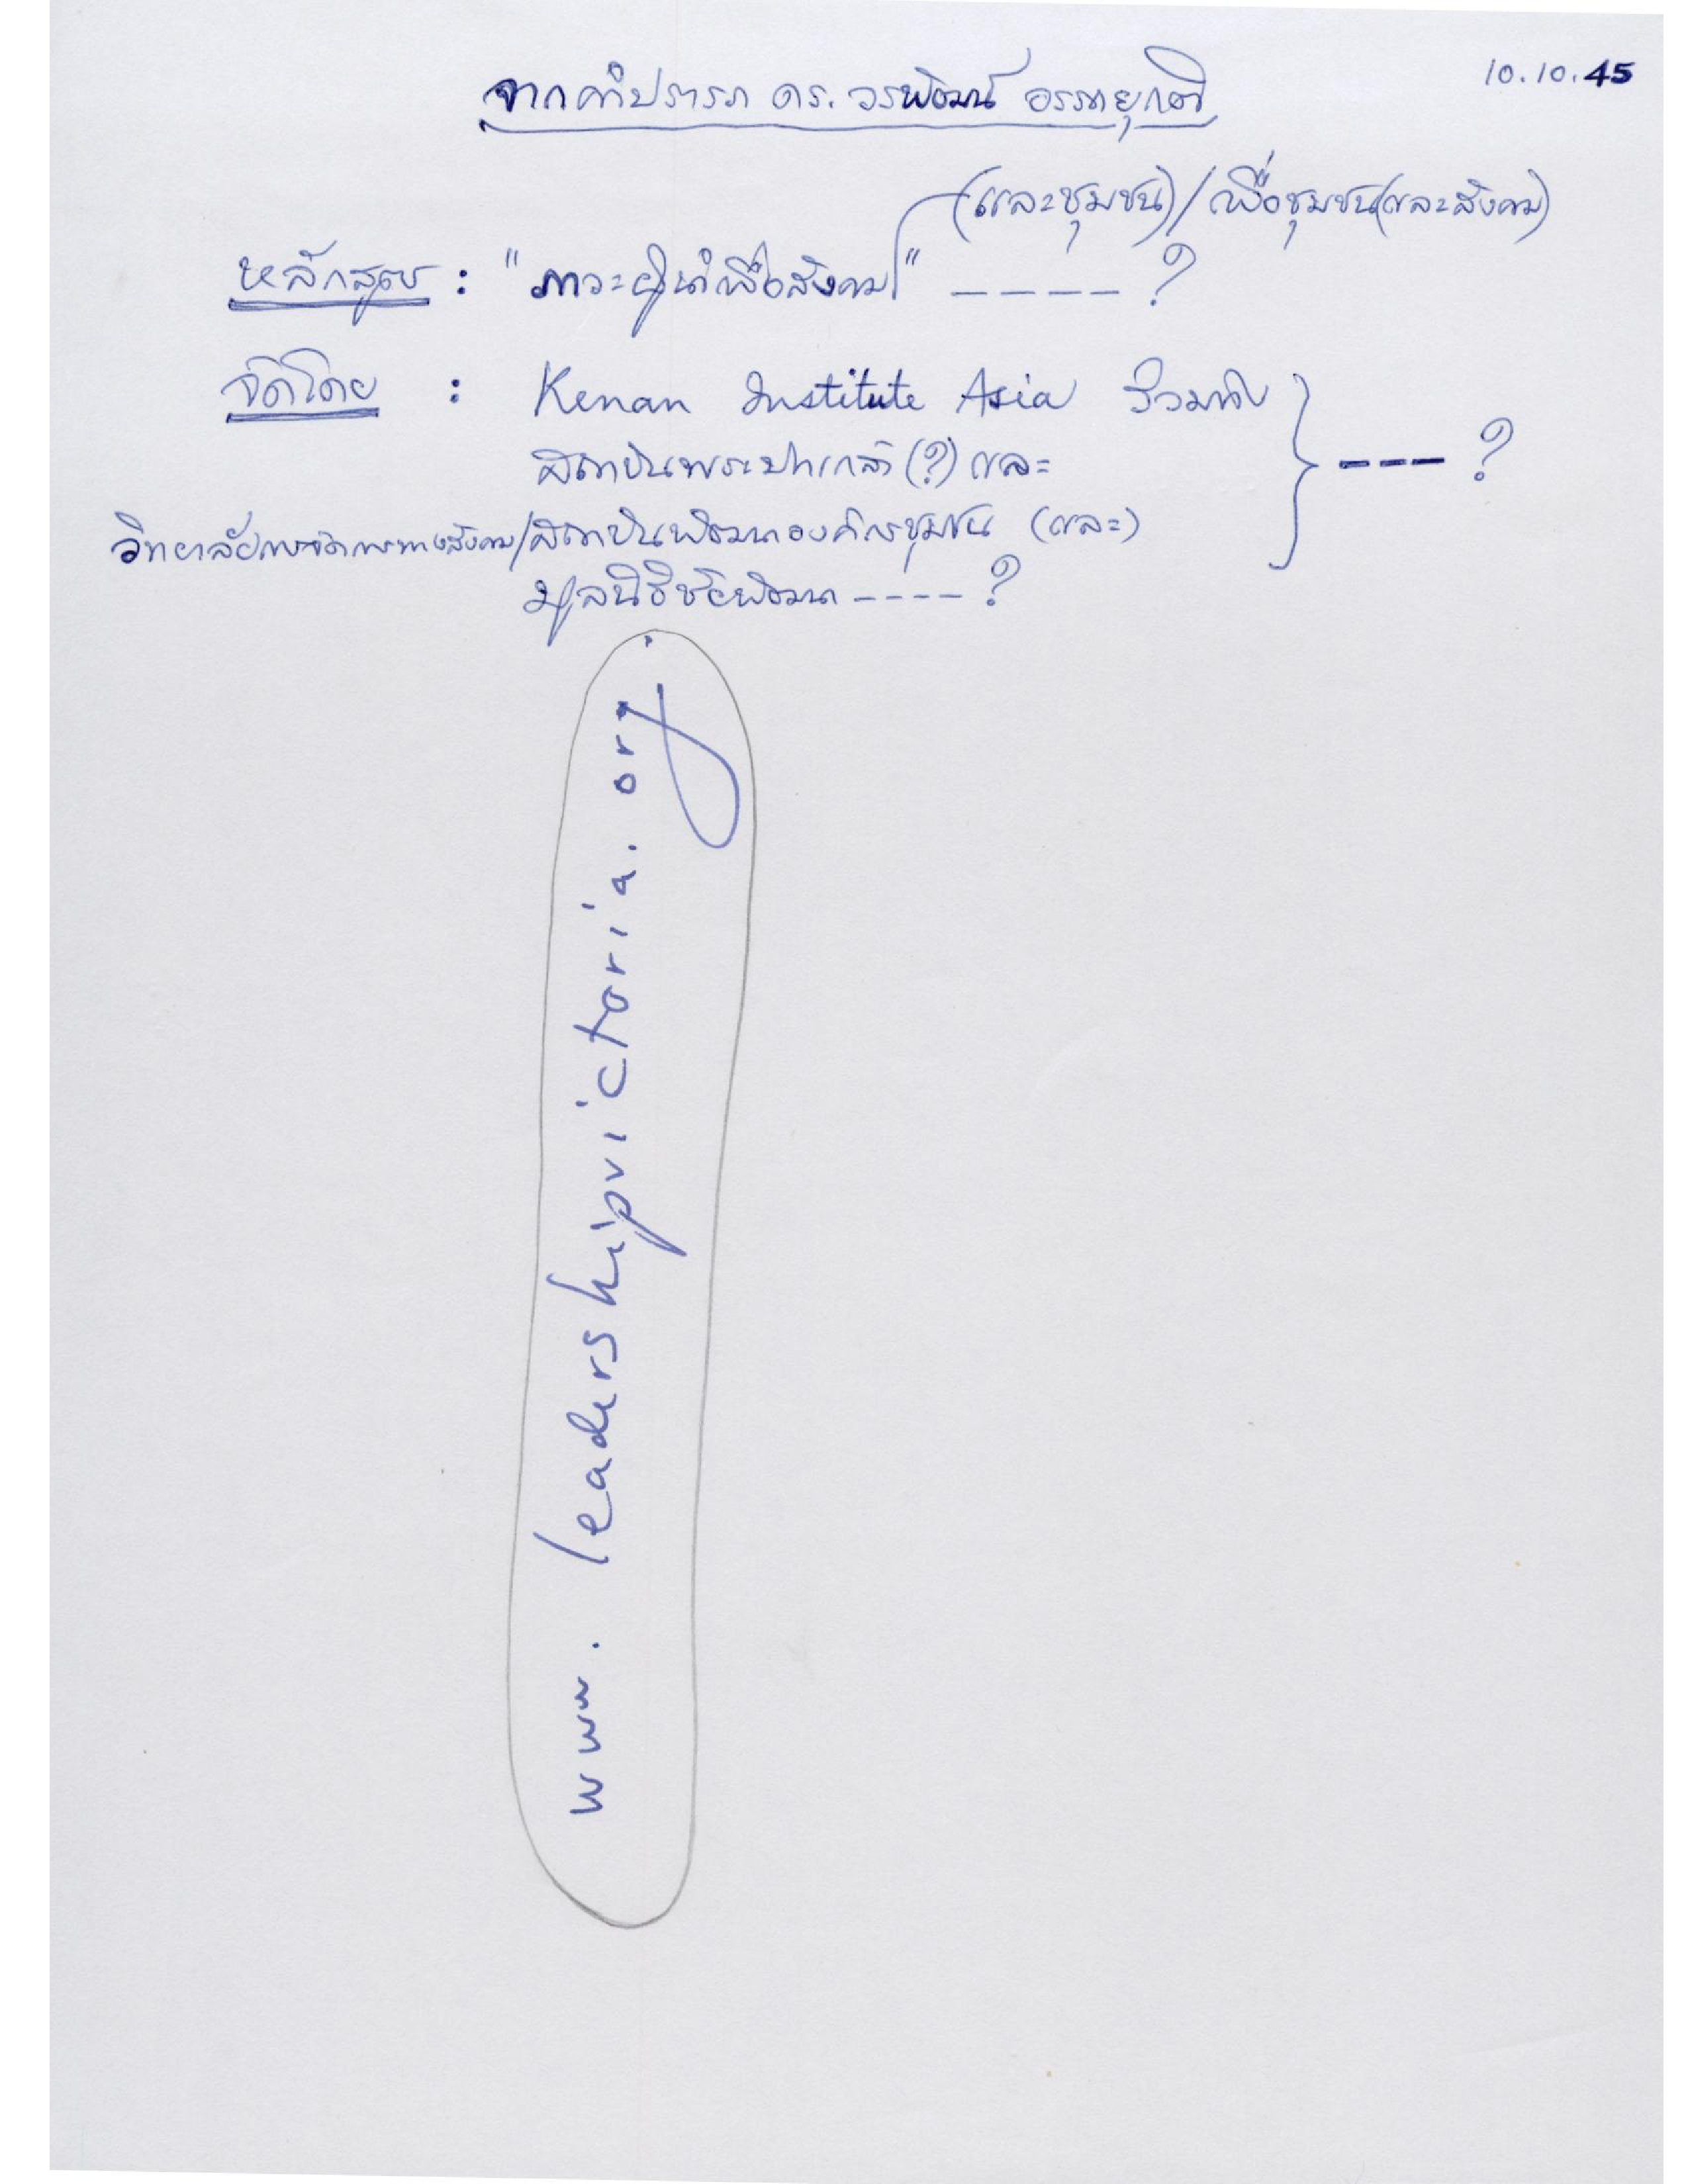 10.10.45
จากคำปรารภ ดร. วรพัฒน์ อรรถยุกติ
(และชุมชน)/เพื่อชุมชน(และสังคม)
หลักสูตร : "ภาวะผู้นำเพื่อสังคม" ----?
จัดโดย : Kenan Institute Asia ร่วมกับ
สถาบันพระปกเกล้า (?) และ ---?
วิทยาลัยการจัดการทางสังคม/สถาบันพัฒนาองค์กรชุมชน (และ)
มูลนิธิชัยพัฒนา ----?
www.leadershipvictoria.org